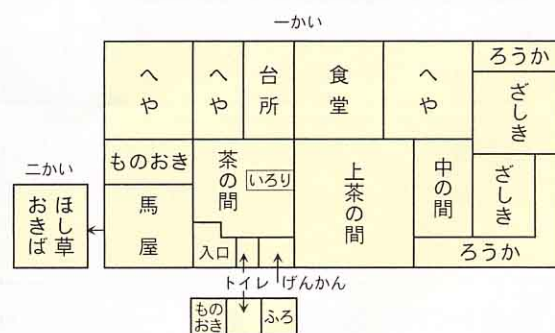 一かい
へや
へや
台所
食堂
へや
ろうか
ざしき
ものおき
茶の間
いろり
上茶の間
中の間
ざしき
二かい
ほし草
おきば
馬屋
入口
ろうか
トイレ
げんかん
もの
おき
ふろ